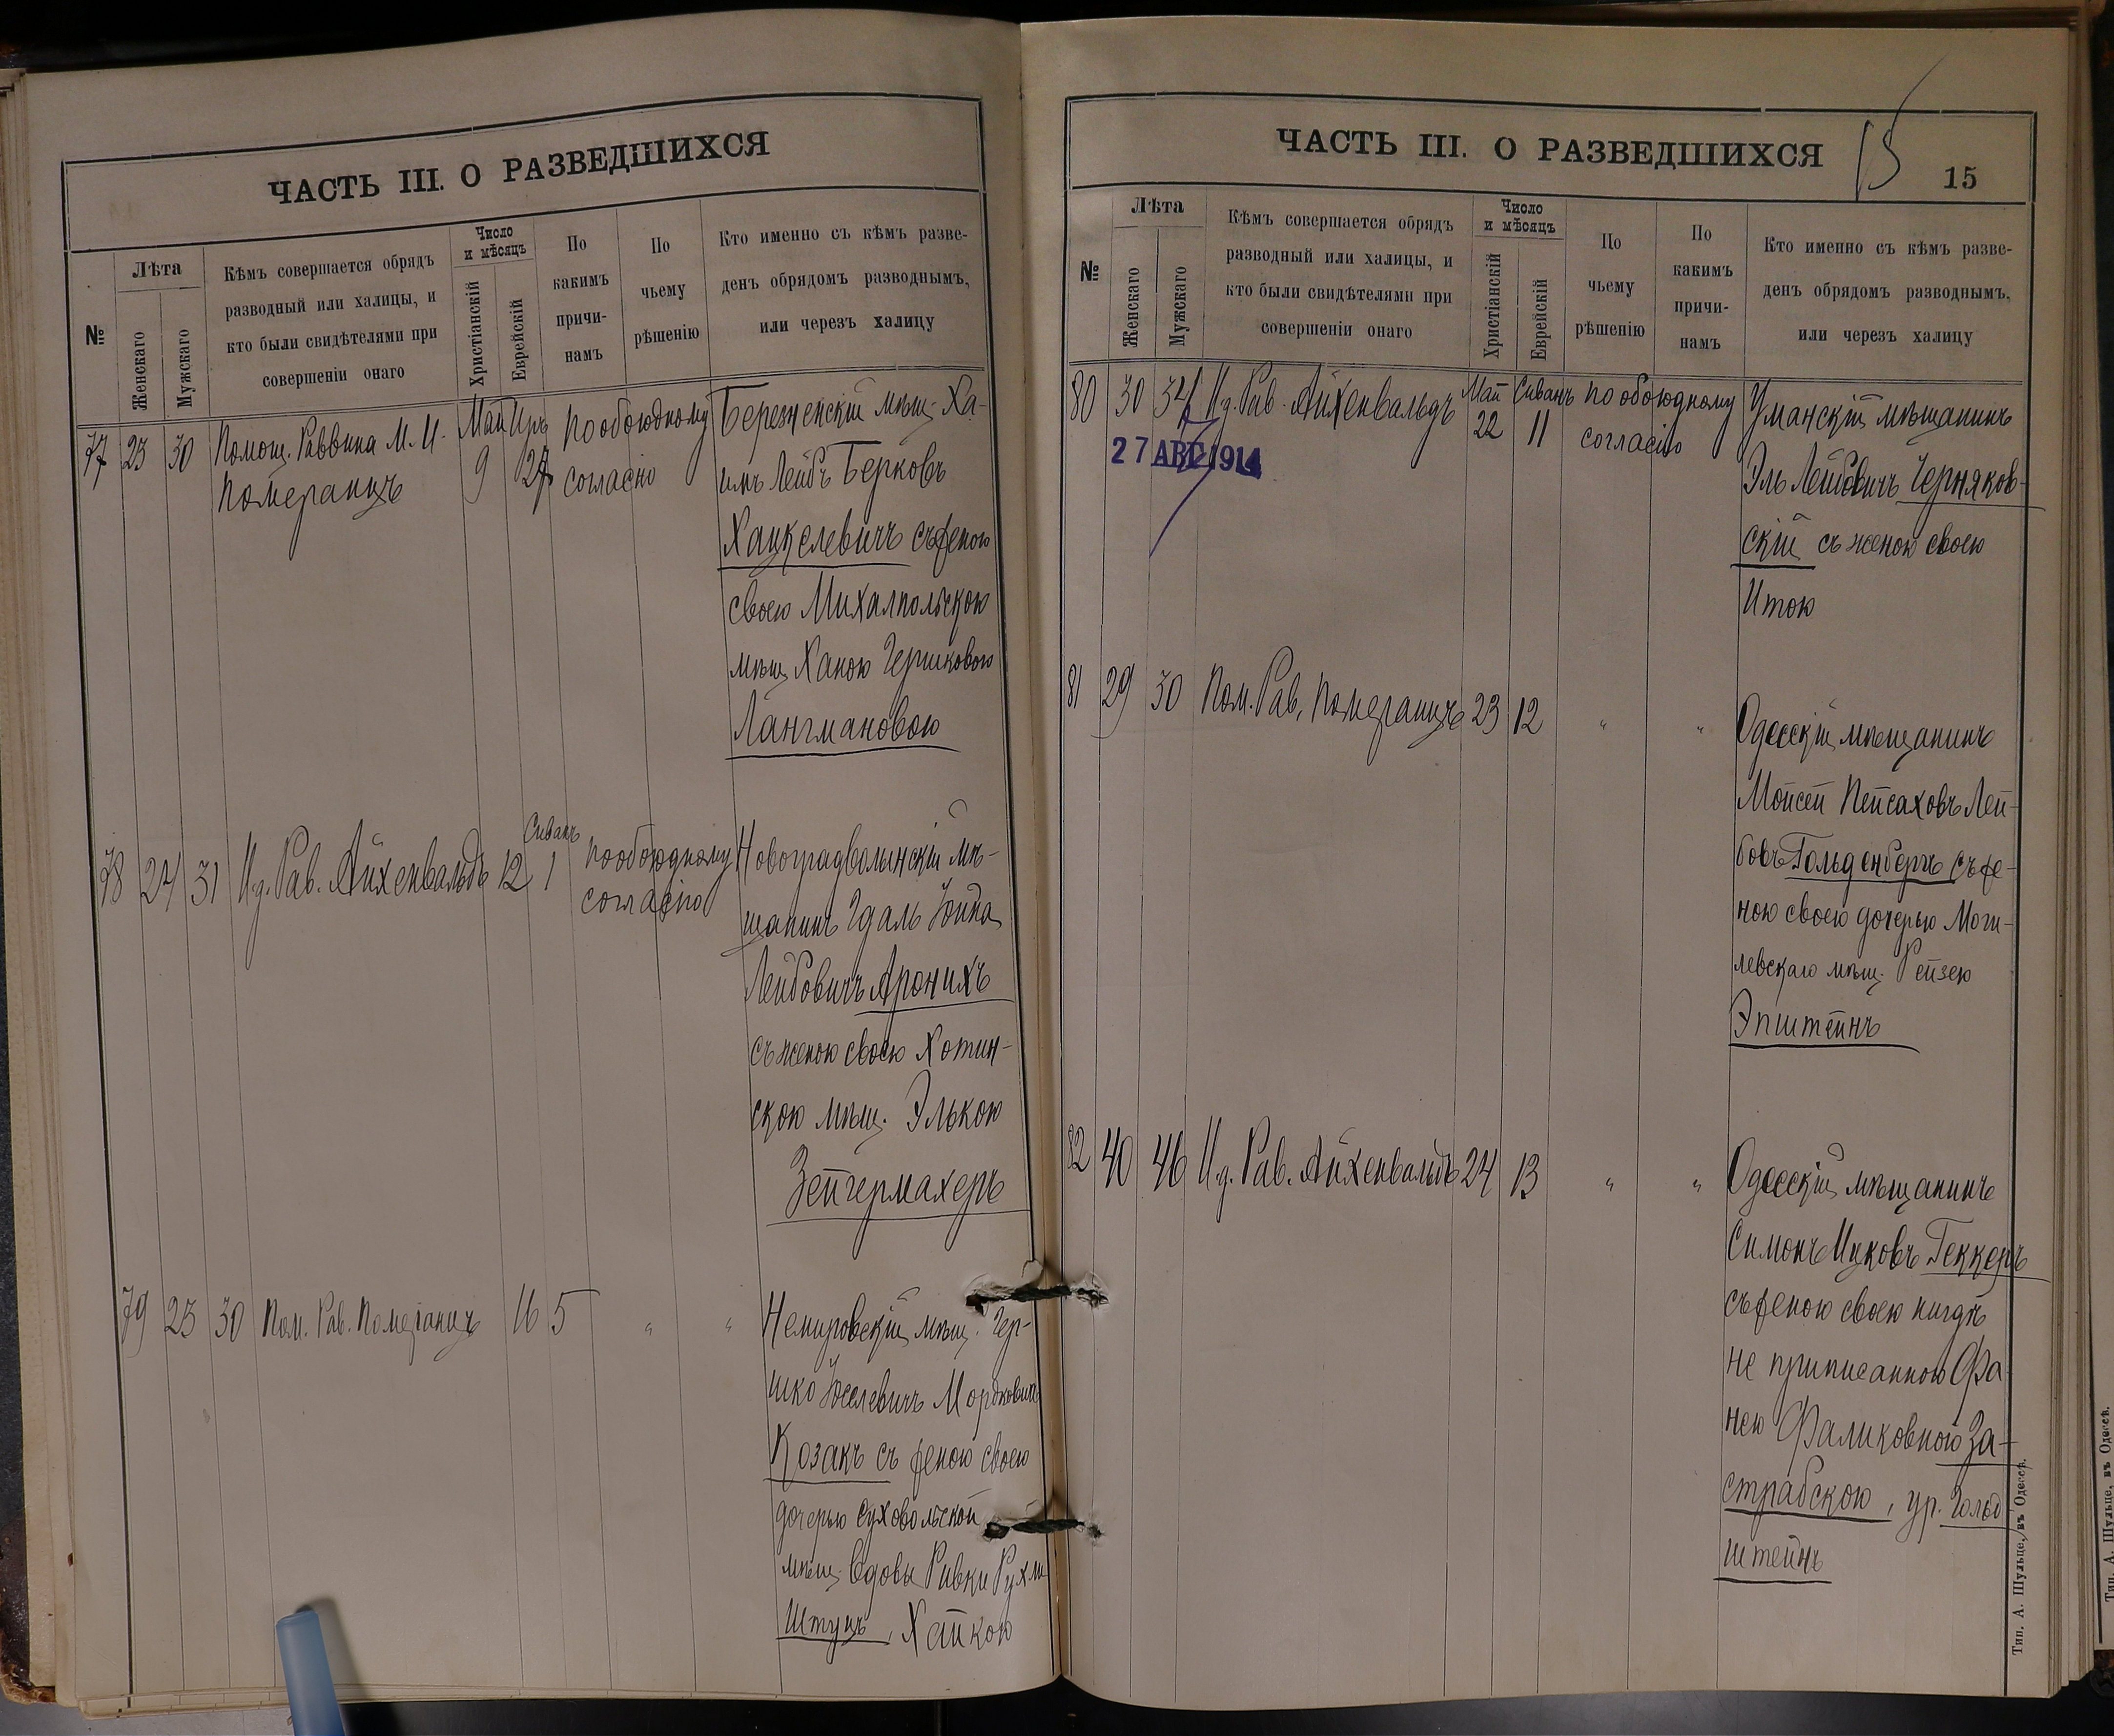 ЧАСТЬ III. О РАЗВЕДШИХСЯ
№
Лѣта
Женскаго
Мужскаго
Кѣмъ совершается обрядъ
разводный или халицы, и
кто были свидѣтелями при
совершеніи онаго
Число
и мѣсяцъ
Христіанскій
Еврейскій
По
какимъ
причи-
намъ
По
чьему
рѣшенію
Кто именно съ кѣмъ разве-
денъ обрядомъ разводнымъ,
или черезъ халицу
77 23 30 Помощ. Раввина М. И.
Померанцъ
Май 9 Иръ 27
по обоюдному
согласію
Береженскій мѣщ. Ха-
имъ Лейбъ Берковъ
Хацкелевичъ съ женою
своею Михалпольскою
мѣщ. Ханою Гершковою
Лангмановою
78 24 31 И.д. Рав. Айхенвальдъ 12 Сиванъ 1
по обоюдному
согласію
Новоградволынскій мѣ-
щанинъ Гдаль Іойна
Лейбовичъ Аронихъ
съ женою своею Хотин-
скою мѣщ. Элькою
Зейгермахеръ
79 23 30 Пом. Рав. Померанцъ 16 5 " "
Немировскій мѣщ. Гер-
шко Іоселевичъ Мордковичъ
Козакъ съ женою своею
дочерью Суховольской
мѣщ. вдовы Ривки Рухли
Штуцъ, Хайкою
ЧАСТЬ III. О РАЗВЕДШИХСЯ
15
15
№
Лѣта
Женскаго
Мужскаго
Кѣмъ совершается обрядъ
разводный или халицы, и
кто были свидѣтелями при
совершеніи онаго
Число
и мѣсяцъ
Христіанскій
Еврейскій
По
чьему
рѣшенію
По
какимъ
причи-
намъ
Кто именно съ кѣмъ разве-
денъ обрядомъ разводнымъ,
или черезъ халицу
80 30 34 И.д. Рав. Айхенвальдъ Май 22 Сиванъ 11
27 АВГ 1914
по обоюдному
согласію
Уманскій мѣщанинъ
Эль Лейбовичъ Черняков-
скій съ женою своею
Итою
81 29 30 Пом. Рав. Померанцъ 23 12 " "
Одесскій мѣщанинъ
Мойсей Пейсаховъ Лей-
бовъ Гольденбергъ съ же-
ною своею дочерью Моги-
левскаго мѣщ. Рейзею
Эпштейнъ
82 40 46 И.д. Рав. Айхенвальдъ 24 13 " "
Одесскій мѣщанинъ
Симонъ Ицковъ Геккеръ
съ женою своею нигдѣ
не приписанною Фа
нею Фаликовною За-
страбскою, ур. Гольд
штейнъ
Тип. А. Шульце, въ Одессѣ.
Тип. А. Шульце, въ Одессѣ.